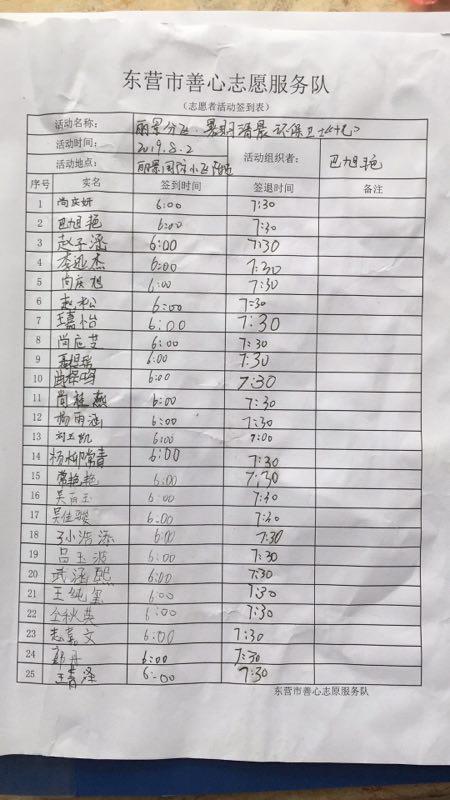 东营市善心志愿服务队
（志愿者活动签到表）
活动名称： 丽景分飞．暑期清晨环保卫士
活动时间： 2019.8.2
活动地点： 丽景国际小 活动组织者： 巴旭艳
序号 实名 签到时间 签退时间 备注
1 尚庆妍 6:00 7:30
2 巴旭艳 6:00 7:30
3 赵子涵 6:00 7:30
4 李延杰 6:00 7:30
5 尚庆旭 6:00 7:30
6 赵松 6:00 7:30
7 王嘉怡 6:00 7:30
8 尚庭芝 6:00 7:30
9 6:00 7:30
10 6:00 7:30
11 尚桂燕 6:00 7:30
12 杨雨涵 6:00 7:30
13 刘玉凯 6:00 7:00
14 杨柳常青 6:00 7:30
15 常艳艳 6:00 7:30
16 吴百玉 6:00 7:30
17 吴佳骏 6:00 7:30
18 小浩添 6:00 7:30
19 吕玉波 6:00 7:30
20 武涵熙 6:00 7:30
21 王纯玺 6:00 7:30
22 仝秋英 6:00 7:30
23 志嘉文 6:00 7:30
24 郭丹 6:00 7:30
25 6:00 7:30
东营市善心志愿服务队